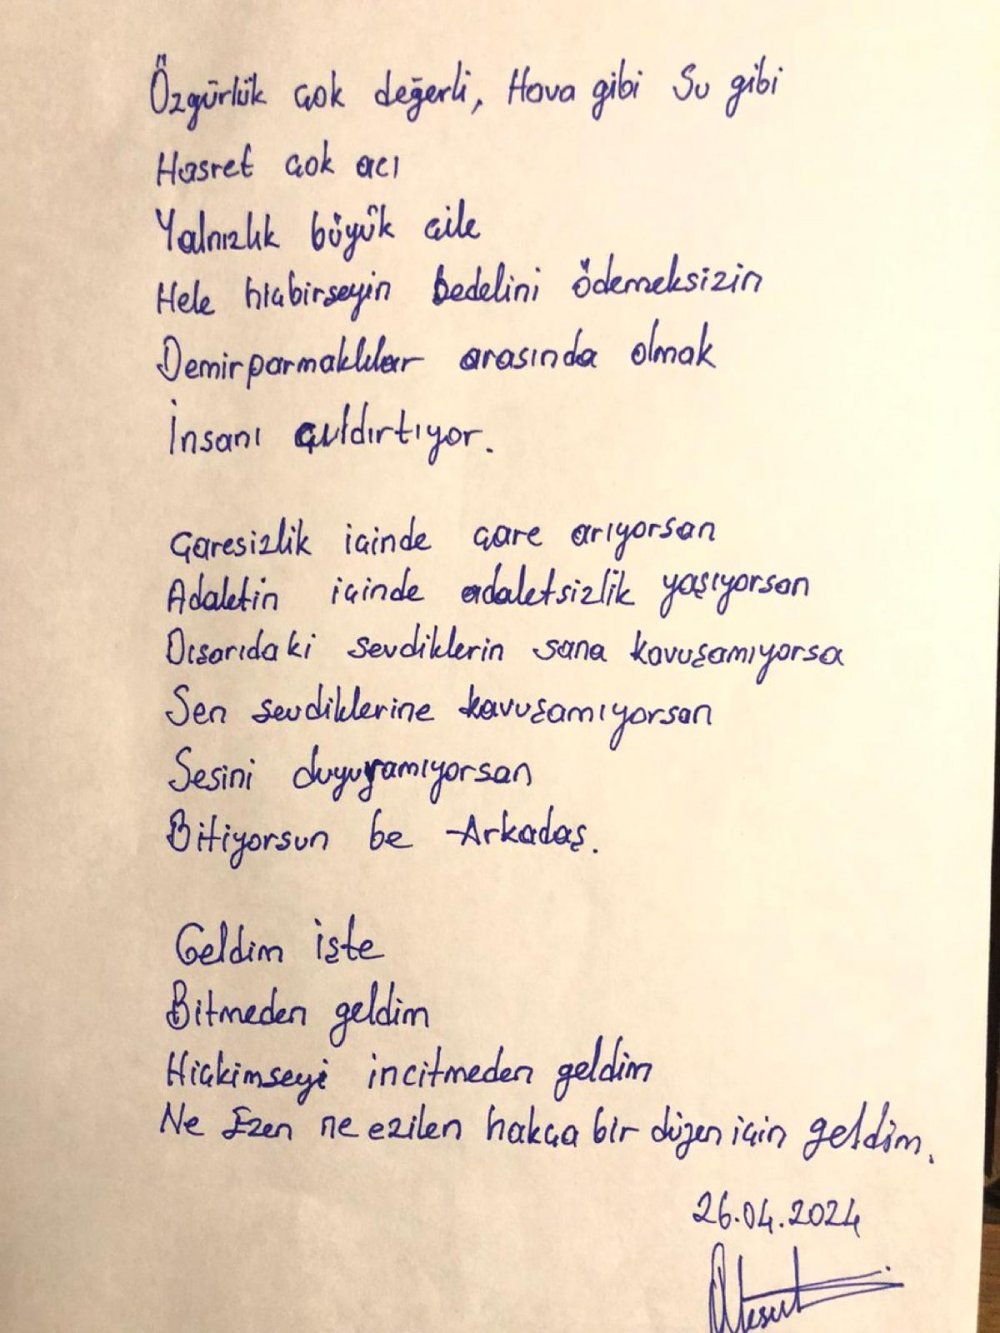 Özgürlük çok değerli, Hava gibi Su gibi
Hasret çok acı
Yalnızlık büyük çile
Hele hiçbirşeyin bedelini ödemeksizin
Demirparmaklıklar arasında olmak
İnsanı çıldırtıyor.
Çaresizlik içinde çare arıyorsan
Adaletin içinde adaletsizlik yaşıyorsan
Dışarıdaki sevdiklerin sana kavuşamıyorsa
Sen sevdiklerine kavuşamıyorsan
Sesini duyuramıyorsan
Bitiyorsun be Arkadaş.
Geldim işte
Bitmeden geldim
Hiçkimseyi incitmeden geldim
Ne Ezen ne ezilen hakça bir düzen için geldim.
26.04.2024